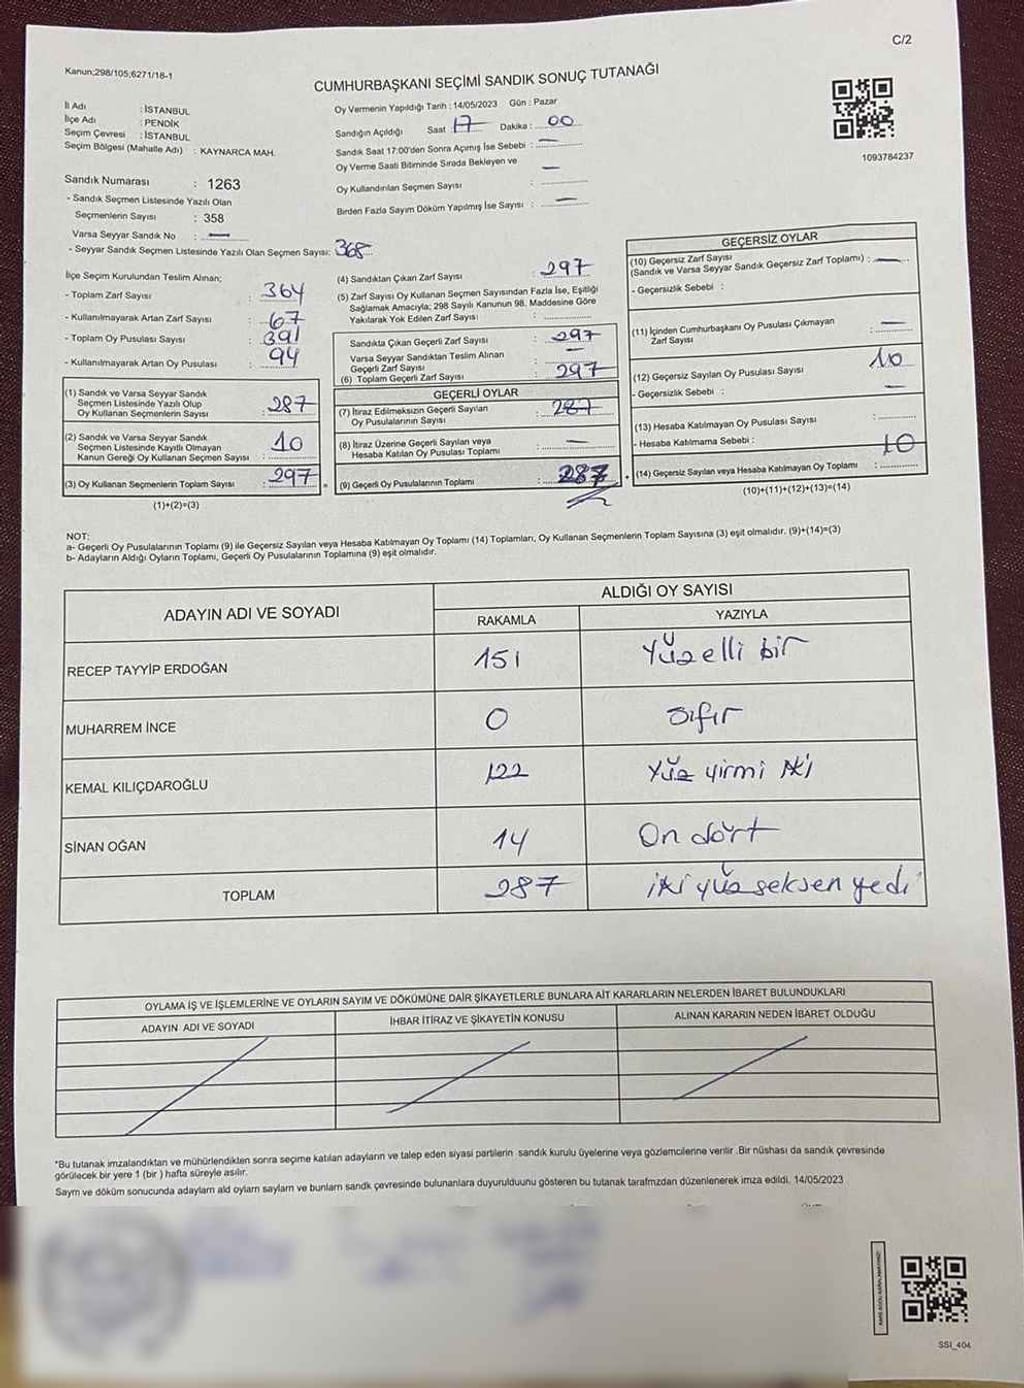 C/2
Kanun;298/105;6271/18-1
CUMHURBAŞKANI SEÇİMİ SANDIK SONUÇ TUTANAĞI
İl Adı : İSTANBUL
İlçe Adı : PENDİK
Seçim Çevresi : İSTANBUL
Seçim Bölgesi (Mahalle Adı) : KAYNARCA MAH.
Oy Vermenin Yapıldığı Tarih : 14/05/2023 Gün : Pazar
Sandığın Açıldığı Saat 17 Dakika : 00
Sandık Saat 17:00'den Sonra Açımış İse Sebebi : —
Oy Verme Saati Bitiminde Sırada Bekleyen ve —
Oy Kullandırılan Seçmen Sayısı :
Birden Fazla Sayım Döküm Yapılmış İse Sayısı : —
1093784237
Sandık Numarası : 1263
- Sandık Seçmen Listesinde Yazılı Olan
Seçmenlerin Sayısı : 358
Varsa Seyyar Sandık No : —
- Seyyar Sandık Seçmen Listesinde Yazılı Olan Seçmen Sayısı: 368
İlçe Seçim Kurulundan Teslim Alınan;
- Toplam Zarf Sayısı : 364
- Kullanılmayarak Artan Zarf Sayısı : 67
- Toplam Oy Pusulası Sayısı : 391
- Kullanılmayarak Artan Oy Pusulası : 94
(1) Sandık ve Varsa Seyyar Sandık
Seçmen Listesinde Yazılı Olup
Oy Kullanan Seçmenlerin Sayısı : 287
(2) Sandık ve Varsa Seyyar Sandık
Seçmen Listesinde Kayıtlı Olmayan
Kanun Gereği Oy Kullanan Seçmen Sayısı : 10
(3) Oy Kullanan Seçmenlerin Toplam Sayısı : 297
(1)+(2)=(3)
(4) Sandıktan Çıkan Zarf Sayısı : 297
(5) Zarf Sayısı Oy Kullanan Seçmen Sayısından Fazla İse, Eşitliği
Sağlamak Amacıyla; 298 Sayılı Kanunun 98. Maddesine Göre
Yakılarak Yok Edilen Zarf Sayısı :
Sandıkta Çıkan Geçerli Zarf Sayısı : 297
Varsa Seyyar Sandıktan Teslim Alınan —
Geçerli Zarf Sayısı :
(6) Toplam Geçerli Zarf Sayısı : 297
GEÇERLİ OYLAR
(7) İtiraz Edilmeksizin Geçerli Sayılan
Oy Pusulalarının Sayısı : 287
(8) İtiraz Üzerine Geçerli Sayılan veya
Hesaba Katılan Oy Pusulası Toplamı : —
(9) Geçerli Oy Pusulalarının Toplamı : 287
GEÇERSİZ OYLAR
(10) Geçersiz Zarf Sayısı
(Sandık ve Varsa Seyyar Sandık Geçersiz Zarf Toplamı) : —
- Geçersizlik Sebebi :
(11) İçinden Cumhurbaşkanı Oy Pusulası Çıkmayan
Zarf Sayısı : —
(12) Geçersiz Sayılan Oy Pusulası Sayısı 10
- Geçersizlik Sebebi : —
(13) Hesaba Katılmayan Oy Pusulası Sayısı :
- Hesaba Katılmama Sebebi :
(14) Geçersiz Sayılan veya Hesaba Katılmayan Oy Toplamı : 10
(10)+(11)+(12)+(13)=(14)
NOT:
a- Geçerli Oy Pusulalarının Toplamı (9) ile Geçersiz Sayılan veya Hesaba Katılmayan Oy Toplamı (14) Toplamları, Oy Kullanan Seçmenlerin Toplam Sayısına (3) eşit olmalıdır. (9)+(14)=(3)
b- Adayların Aldığı Oyların Toplamı, Geçerli Oy Pusulalarının Toplamına (9) eşit olmalıdır.
ADAYIN ADI VE SOYADI ALDIĞI OY SAYISI
RAKAMLA YAZIYLA
RECEP TAYYİP ERDOĞAN 151 Yüzelli bir
MUHARREM İNCE 0 sıfır
KEMAL KILIÇDAROĞLU 122 Yüz yirmi iki
SİNAN OĞAN 14 On dört
TOPLAM 287 iki yüz seksen yedi
OYLAMA İŞ VE İŞLEMLERİNE VE OYLARIN SAYIM VE DÖKÜMÜNE DAİR ŞİKAYETLERLE BUNLARA AİT KARARLARIN NELERDEN İBARET BULUNDUKLARI
ADAYIN ADI VE SOYADI İHBAR İTİRAZ VE ŞİKAYETİN KONUSU ALINAN KARARIN NEDEN İBARET OLDUĞU
*Bu tutanak imzalandıktan ve mühürlendikten sonra seçime katılan adayların ve talep eden siyasi partilerin sandık kurulu üyelerine veya gözlemcilerine verilir .Bir nüshası da sandık çevresinde
görülecek bir yere 1 (bir ) hafta süreyle asılır.
Sayım ve döküm sonucunda adayların ald oyların sayların ve bunların sandk çevresinde bulunanlara duyurulduunu gösteren bu tutanak tarafmzdan düzenlenerek imza edildi. 14/05/2023
SSI_404